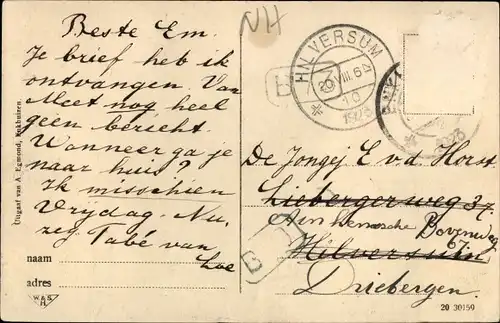 NH
Beste Em.
Je brief heb ik
ontvangen Van
Meet nog heel
geen bericht.
Wanneer ga je
naar huis?
Ik misschien
Vrijdag. Nu,
zeg Tabé van
Loe
naam
adres
W.& S.
H.
Uitgaaf van A. Egmond,
HILVERSUM
20 VIII. 6
10
De Jongej E v.d. Horst
Liebergerweg 37
Arnhemsche Bovenweg
67.
Hilversum
Driebergen.
B
20 30159